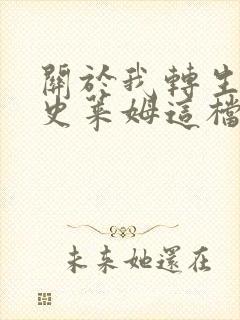 關於我轉生
史萊姆這檔
未來她還在